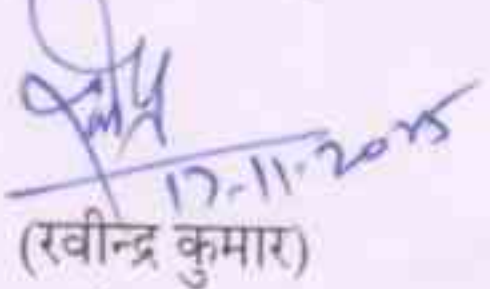 17-11-2025
(रवीन्द्र कुमार)